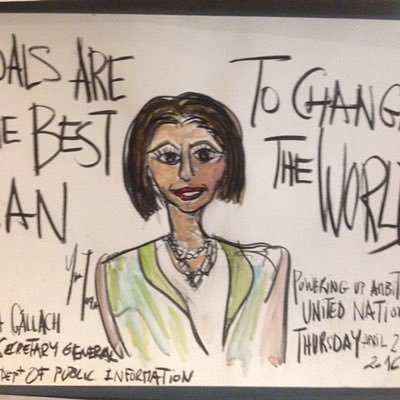 OALS ARE
E BEST
AN
TO CHANG
THE WORL
A GALLACH
SECRETARY GENERAL
DEPT OF PUBLIC INFORMATION
POWERING UP AMBIT
UNITED NATIO
THURSDAY APRIL 2
2016